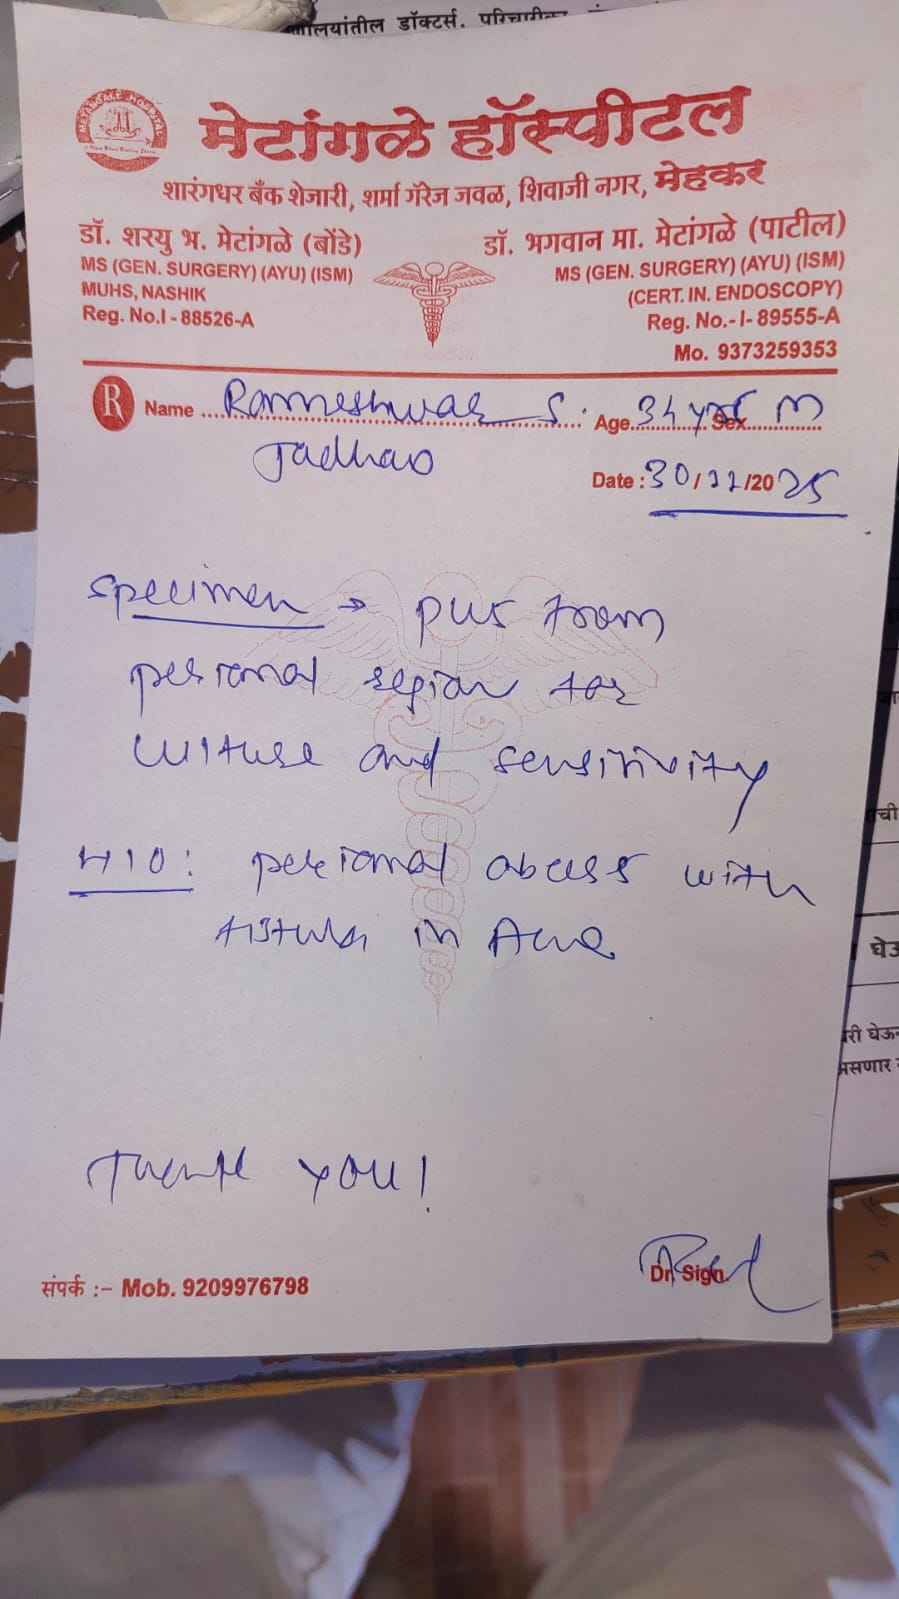 डॉक्टर्स. परिचारीका
मेटांगळे हॉस्पीटल
शारंगधर बँक शेजारी, शर्मा गॅरेज जवळ, शिवाजी नगर, मेहकर
डॉ. शरयु भ. मेटांगळे (बोंडे)
MS (GEN. SURGERY) (AYU) (ISM)
MUHS, NASHIK
Reg. No.I - 88526-A
डॉ. भगवान मा. मेटांगळे (पाटील)
MS (GEN. SURGERY) (AYU) (ISM)
(CERT. IN. ENDOSCOPY)
Reg. No.- I- 89555-A
Mo. 9373259353
R Name Rameshwar S. Age 34 yrs Sex M
Jadhao
Date : 30/11/2025
specimen → pus from
perianal region for
culture and sensitivity
H/O: perianal abcess with
fistula in Ano
Thank you!
संपर्क :- Mob. 9209976798
Dr. Sign.
घेऊ
री घेऊन
असणार